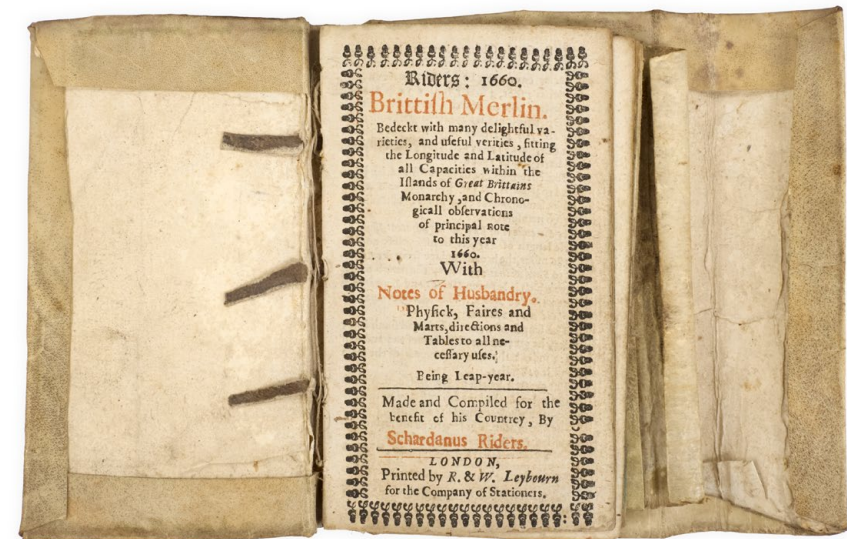 Riders: 1660.
Brittiſh Merlin.
Bedeckt with many delightful va-
rieties, and uſeful verities, fitting
the Longitude and Latitude of
all Capacities within the
Iſlands of Great Brittains
Monarchy, and Chrono-
gicall obſervations
of principal note
to this year
1660.
With
Notes of Husbandry.
Phyſick, Faires and
Marts, directions and
Tables to all ne-
ceſſary uſes.
Being Leap-year.
Made and Compiled for the
benefit of his Countrey, By
Schardanus Riders.
LONDON,
Printed by R. & W. Leybourn
for the Company of Stationers.